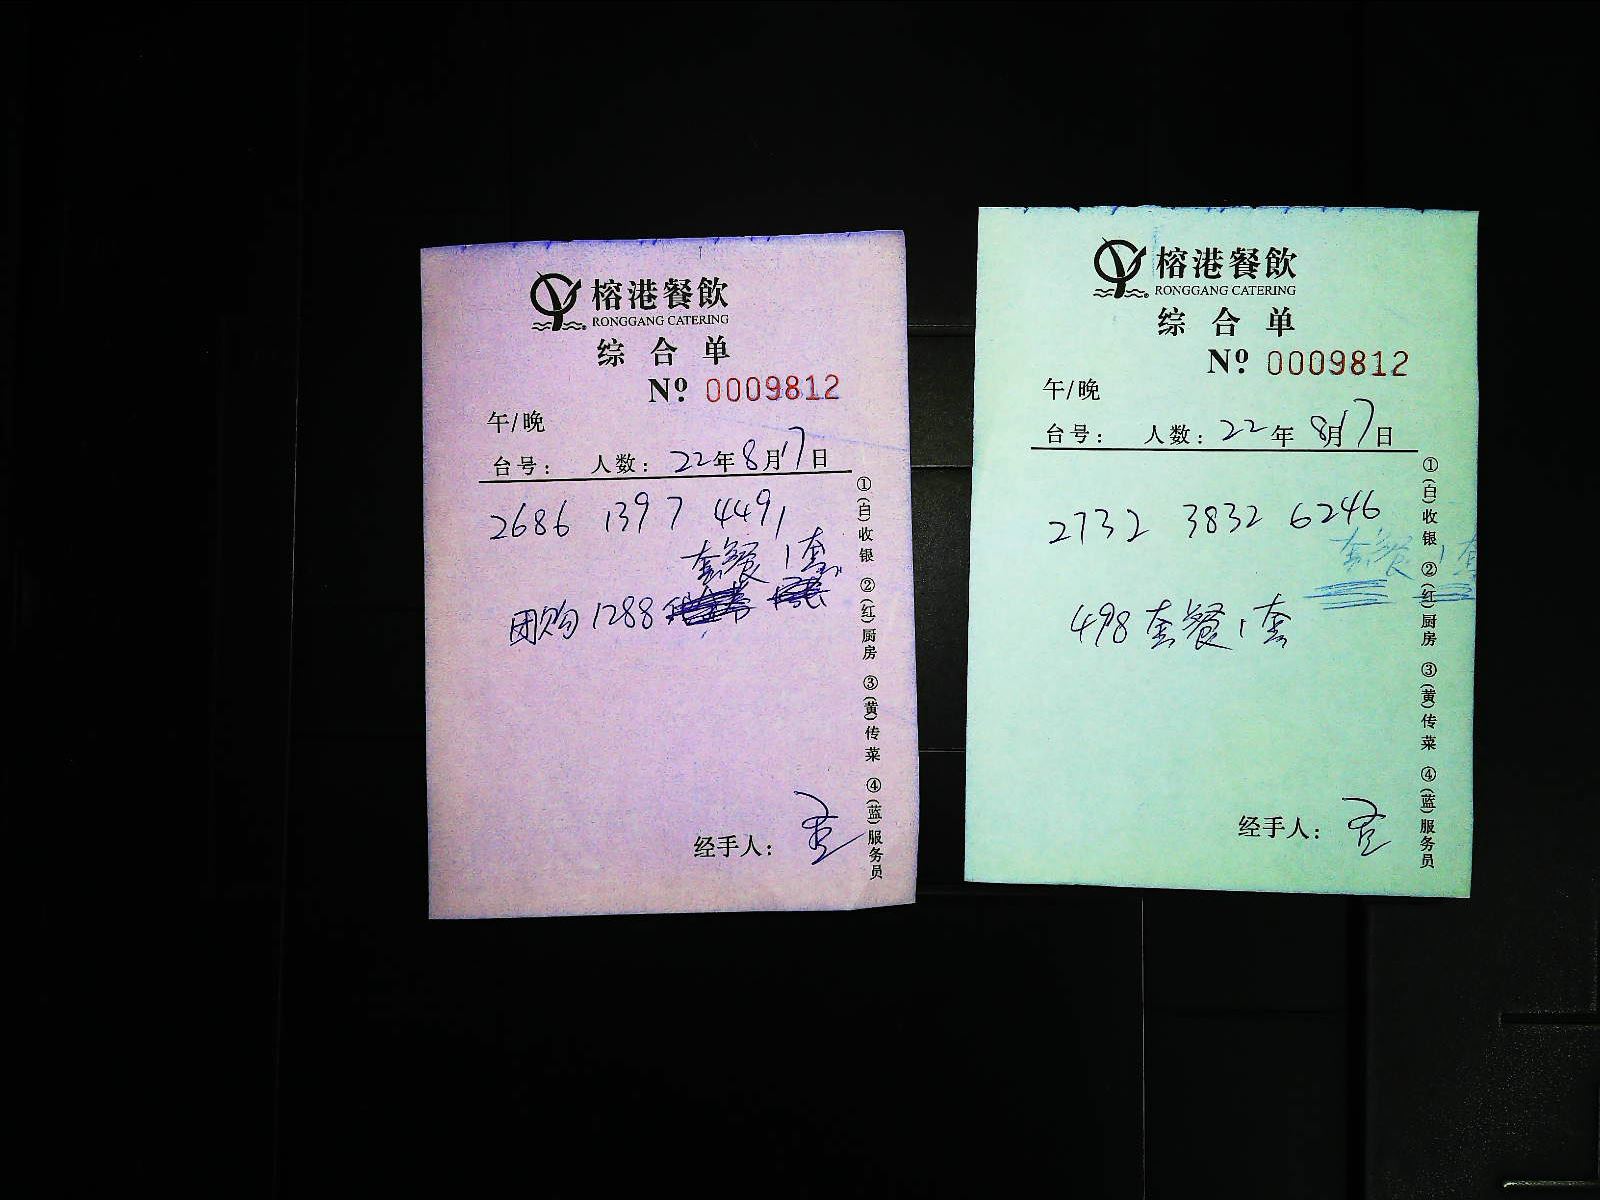 榕港餐飲
RONGGANG CATERING
综合单
Nº 0009812
午/晚
台号： 人数： 22年8月17日
2686 1397 4491
套餐1套
团购1288
经手人：
①(白)收银 ②(红)厨房 ③(黄)传菜 ④(蓝)服务员
榕港餐飲
RONGGANG CATERING
综合单
Nº 0009812
午/晚
台号： 人数： 22年8月17日
2732 3832 6246
套餐1套
498套餐1套
经手人：
①(白)收银 ②(红)厨房 ③(黄)传菜 ④(蓝)服务员